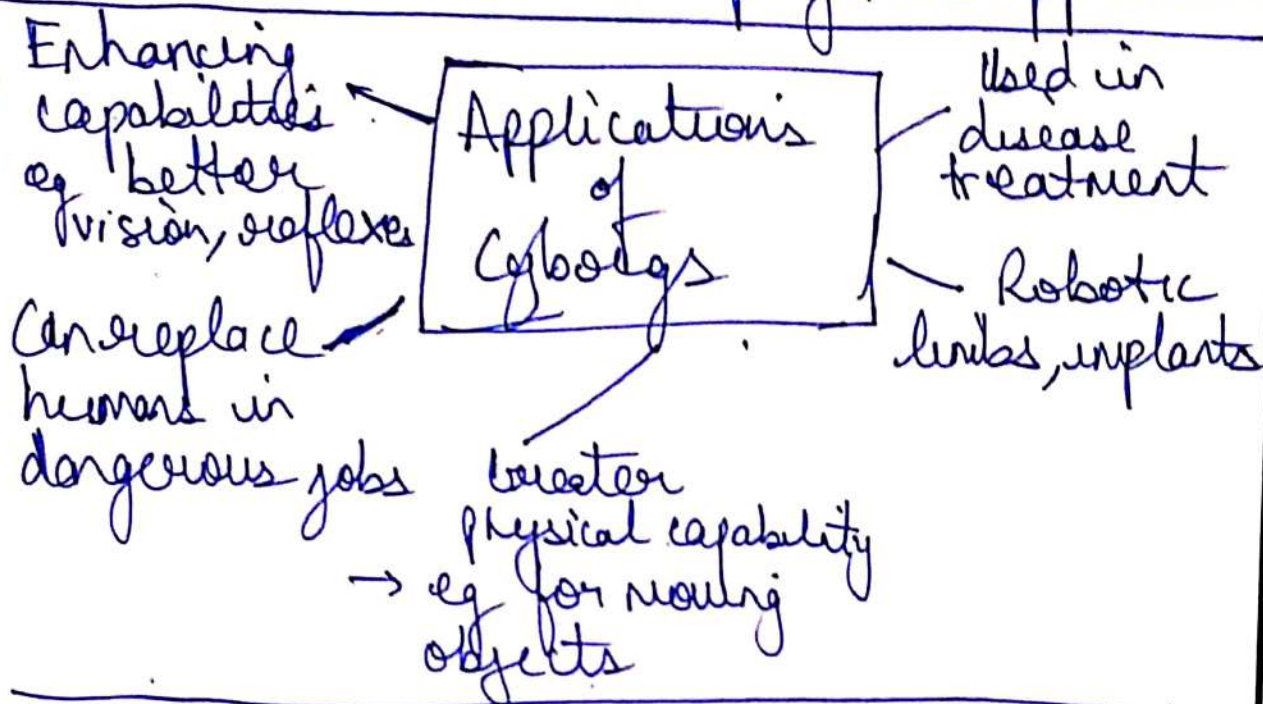 Enhancing
capabilities
eg better
vision, reflexes
Applications
of
Cyborgs
Used in
disease
treatment
Robotic
limbs, implants
Can replace
humans in
dangerous jobs
Greater
physical capability
→ eg for moving
objects